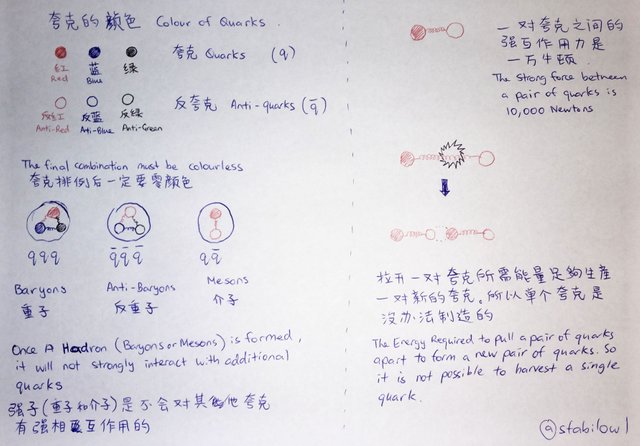 夸克的颜色 Colour of Quarks.
夸克 Quarks (q)
红 蓝 绿
Red Blue
反夸克 Anti-quarks (q̅)
反红 反蓝 反绿
Anti-Red Ati-Blue Anti-Green
The final combination must be colourless
夸克排例后一定要零颜色
qqq q̅q̅q̅ qq̅
Baryons Anti-Baryons Mesons
重子 反重子 介子
Once A Hadron (Bayons or Mesons) is formed,
it will not strongly interact with additional
quarks
强子(重子和介子)是不会对其他夸克
有强相互作用的
一对夸克之间的
强互作用力是
一万牛顿.
The strong force between
a pair of quarks is
10,000 Newtons
拉开一对夸克所需能量足夠生産
一对新的夸克。所以单个夸克是
没办法制造的
The Energy Required to pull a pair of quarks
apart to form a new pair of quarks. So
it is not possible to harvest a single
quark.
@stabilowl